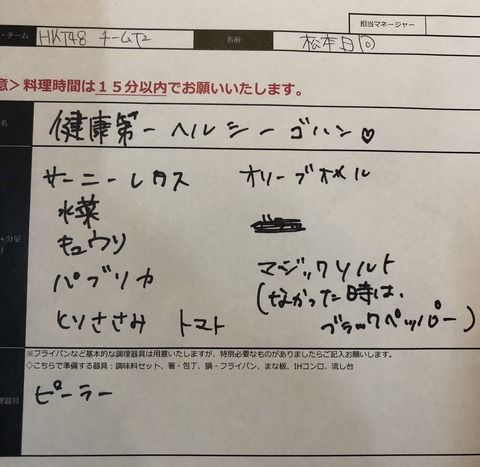 担当マネージャー
・チーム HKT48 チームT2 名前 松本日向
意＞料理時間は１５分以内でお願いいたします。
名 健康第一ヘルシーゴハン♡
サニーレタス オリーブオイル
水菜
＋分量
キュウリ
パプリカ マジックソルト
(なかった時は、
とりささみ トマト ブラックペッパー)
※フライパンなど基本的な調理器具は用意いたしますが、特別必要なものがありましたらご記入お願いします。
◇こちらで準備する器具：調味料セット、箸・包丁、鍋・フライパン、まな板、IHコンロ、流し台
理器具 ピーラー